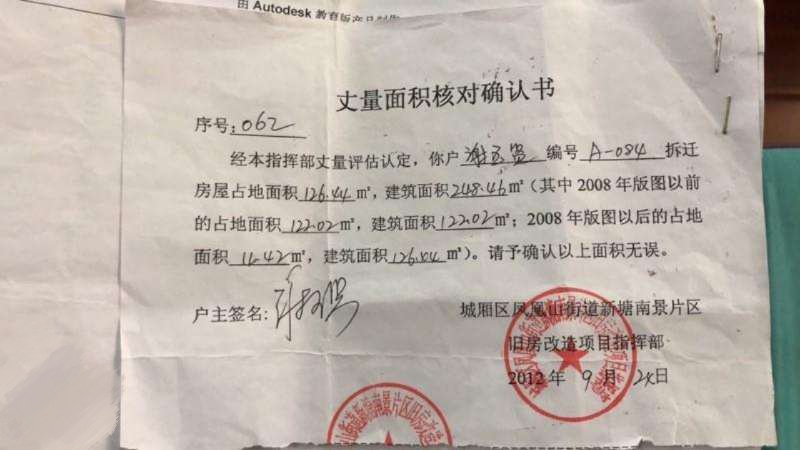 由 Autodesk 教育版产品制作
丈量面积核对确认书
序号:062
经本指挥部丈量评估认定，你户 编号 A-084 拆迁
房屋占地面积126.44㎡，建筑面积248.46㎡(其中2008年版图以前
的占地面积122.02㎡，建筑面积122.02㎡；2008年版图以后的占地
面积 ㎡，建筑面积126.44㎡)。请予确认以上面积无误。
户主签名:
城厢区凤凰山街道新塘南景片区
旧房改造项目指挥部
2012年9月24日